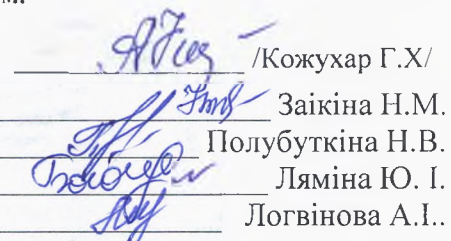 м.
/Кожухар Г.Х/
Заікіна Н.М.
Полубуткіна Н.В.
Ляміна Ю. І.
Логвінова А.І..